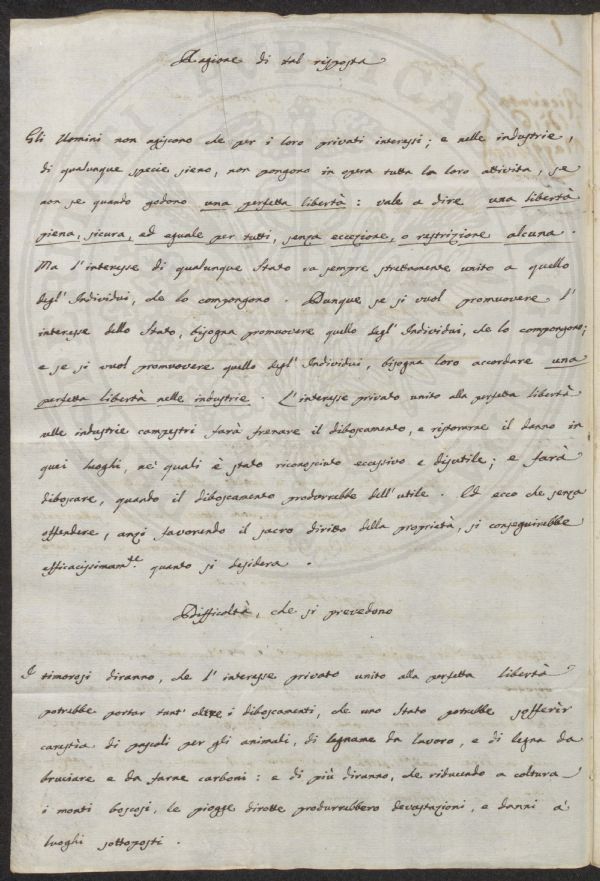 Ragione di tal risposta
Gli Uomini non agiscono che per i loro privati interessi; e nelle industrie,
di qualunque specie sieno, non pongono in opera tutta la loro attività, se
non se quando godono una perfetta libertà: vale a dire una libertà
piena, sicura, ed eguale per tutti, senza eccezione, o restrizione alcuna.
Ma l'interesse di qualunque Stato va sempre strettamente unito a quello
degl'Individui, che lo compongono. Dunque se si vuol promuovere l'
interesse dello Stato, bisogna promuovere quello degl'Individui, che lo compongono;
e se si vuol promuovere quello degl'Individui, bisogna loro accordare una
perfetta libertà nelle industrie. L'interesse privato unito alla perfetta libertà
nelle industrie campestri farà frenare il diboscamento, e ristorarne il danno in
quei luoghi, ne' quali è stato riconosciuto eccessivo e disutile; e farà
diboscare, quando il diboscamento produrrebbe dell'utile. Ed ecco che senza
offendere, anzi favorendo il sacro diritto della proprietà, si conseguirebbe
efficacissimam.te quanto si desidera.
Difficoltà, che si prevedono
I timorosi diranno, che l'interesse privato unito alla perfetta libertà
potrebbe portar tant'oltre i diboscamenti, che uno Stato potrebbe sofferir
carestia di pascoli per gli animali, di legname da lavoro, e di legna da
bruciare e da farne carboni: e di più diranno, che riducendo a coltura
i monti boscosi, le piogge dirotte produrrebbero devastazioni, e danni a'
luoghi sottoposti.